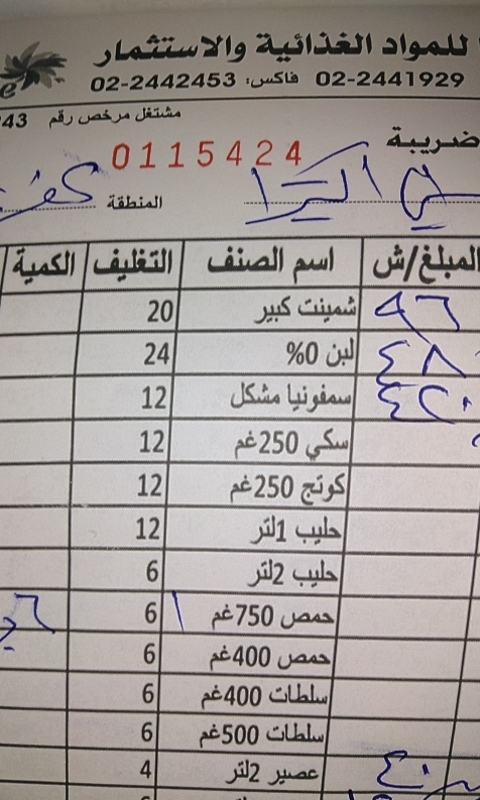 للمواد الغذائية والاستثمار
02-2441929 فاكس: 02-2442453
مشتغل مرخص رقم 43
ضريبة
0115424
المنطقة
المبلغ/ش اسم الصنف التغليف الكمية
٩٦ شمينت كبير 20
٤٨ لبن 0% 24
سمفونيا مشكل 12
سكي 250غم 12
كوتج 250غم 12
حليب 1لتر 12
حليب 2لتر 6
حمص 750غم 6
حمص 400غم 6
سلطات 400غم 6
سلطات 500غم 6
عصير 2لتر 4